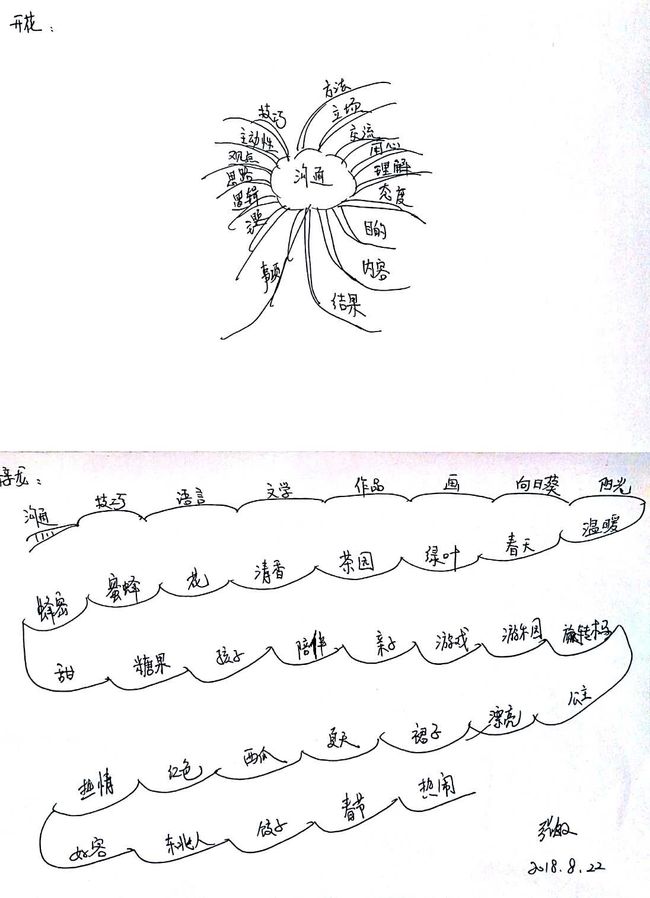 开花：
方法
技巧 立场
主动性 交流
观点 用心
沟通 理解
思路 态度
逻辑
目的
事项 内容
结果
接龙：
沟通 技巧 语言 文学 作品 画 向日葵 阳光
蜂蜜 蜜蜂 花 清香 茶园 绿叶 春天 温暖
甜 糖果 孩子 陪伴 亲子 游戏 游乐园 旋转木马
热情 红色 西瓜 夏天 裙子 漂亮 公主
好客 东北人 饺子 春节 热闹
张敏
2018.8.22